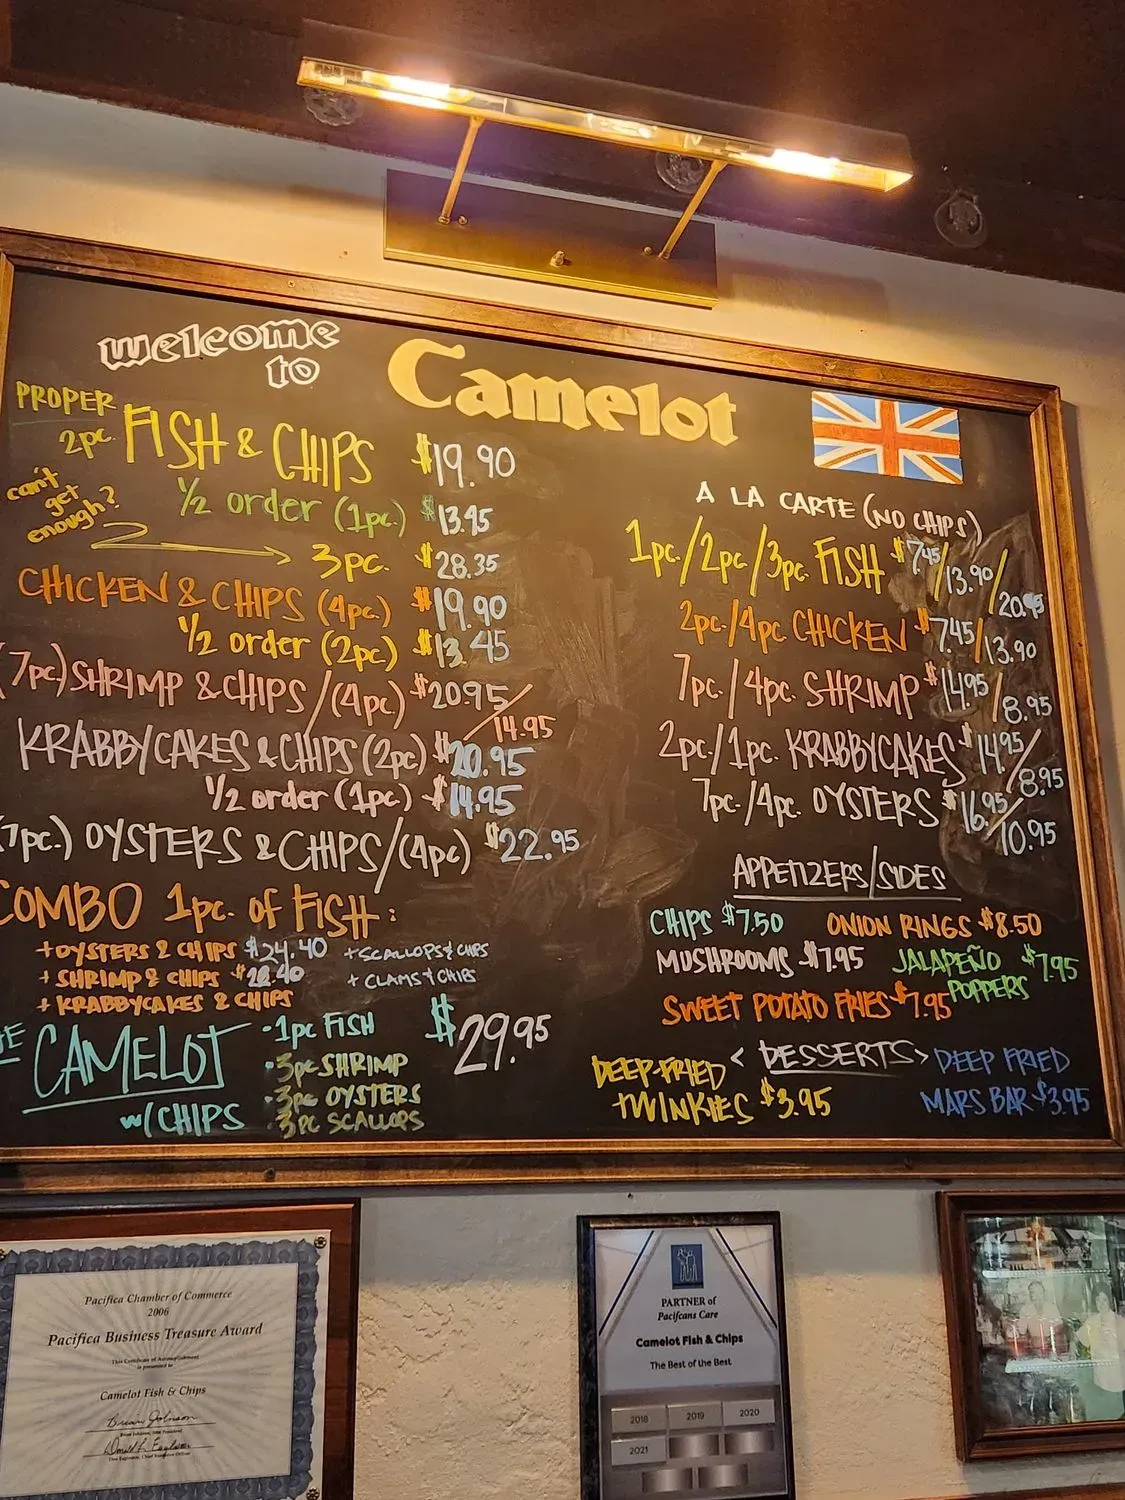 welcome
to
Camelot
PROPER
2pc. FISH & CHIPS $19.90
can't
get
enough?
1/2 order (1pc.) $13.45
3pc. $28.35
CHICKEN & CHIPS (4pc.) $19.90
1/2 order (2pc.) $13.45
(7pc) SHRIMP & CHIPS/(4pc) $20.95/
14.95
KRABBYCAKES & CHIPS (2pc) $20.95
1/2 order (1pc) $14.95
(7pc.) OYSTERS & CHIPS/(4pc) $22.95
COMBO 1pc. of FISH:
+OYSTERS & CHIPS $24.40 +SCALLOPS & CHIPS
+ SHRIMP & CHIPS $22.40 + CLAMS & CHIPS
+ KRABBYCAKES & CHIPS
CAMELOT
w/CHIPS
•1pc FISH $29.95
•3pc SHRIMP
•3pc OYSTERS
•3pc SCALLOPS
A LA CARTE (NO CHIPS)
1pc/2pc/3pc. FISH $7.45/13.90/
20.95
2pc/4pc CHICKEN $7.45/13.90
7pc./4pc. SHRIMP $14.95/8.95
2pc./1pc. KRABBYCAKES $14.95/8.95
7pc./4pc. OYSTERS $16.95/10.95
APPETIZERS/SIDES
CHIPS $7.50 ONION RINGS $8.50
MUSHROOMS $7.95 JALAPEÑO $7.95
POPPERS
SWEET POTATO FRIES $7.95
< DESSERTS >
DEEP-FRIED
TWINKIES $3.95
DEEP FRIED
MARS BAR $3.95
Pacifica Chamber of Commerce
2006
Pacifica Business Treasure Award
This Certificate of Accomplishment
is presented to
Camelot Fish & Chips
PARTNER of
Pacificans Care
Camelot Fish & Chips
The Best of the Best
2018 2019 2020
2021